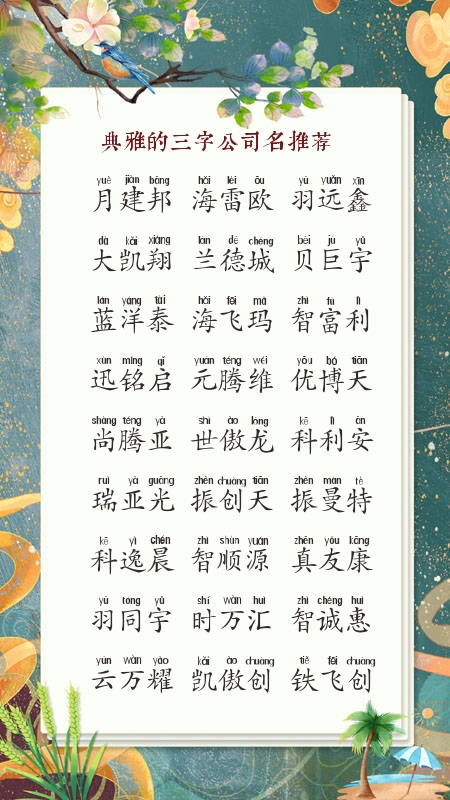 典雅的三字公司名推荐
yuè jiàn bāng hǎi léi ōu yǔ yuǎn xīn
月建邦 海雷欧 羽远鑫
dà kǎi xiáng lán dé chéng bèi jù yǔ
大凯翔 兰德城 贝巨宇
lán yáng tài hǎi fēi mǎ zhì fù lì
蓝洋泰 海飞玛 智富利
xùn míng qǐ yuán téng wéi yōu bó tiān
迅铭启 元腾维 优博天
shàng téng yà shì ào lóng kē lì ān
尚腾亚 世傲龙 科利安
ruì yà guāng zhèn chuàng tiān zhèn màn tè
瑞亚光 振创天 振曼特
kē yì chén zhì shùn yuán zhēn yǒu kāng
科逸晨 智顺源 真友康
yǔ tóng yǔ shí wàn huì zhì chéng huì
羽同宇 时万汇 智诚惠
yún wàn yào kǎi ào chuàng tiě fēi chuàng
云万耀 凯傲创 铁飞创